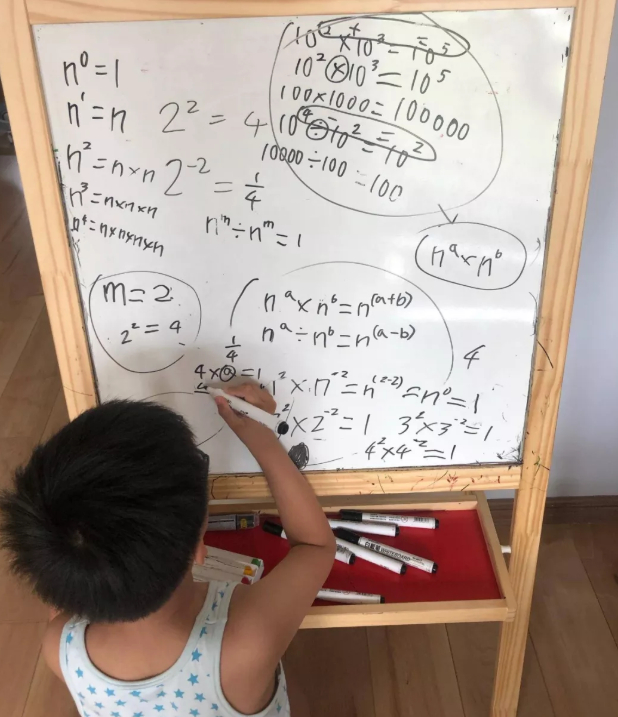 n⁰=1
n¹=n
n²=n×n
n³=n×n×n
n⁴=n×n×n×n
2²=4
2⁻²=1/4
nᵐ÷nᵐ=1
10²×10³=10⁵
+
10²×10³=10⁵
100×1000=100000
10⁴÷10²=10²
10000÷100=100
nᵃ×nᵇ
m=2
2²=4
nᵃ×nᵇ=n⁽ᵃ⁺ᵇ⁾
nᵃ÷nᵇ=n⁽ᵃ⁻ᵇ⁾
4
1/4
4×a=1
n²×n⁻²=n⁽²⁻²⁾=n⁰=1
×2⁻²=1
3²×3⁻²=1
4²×4⁻²=1